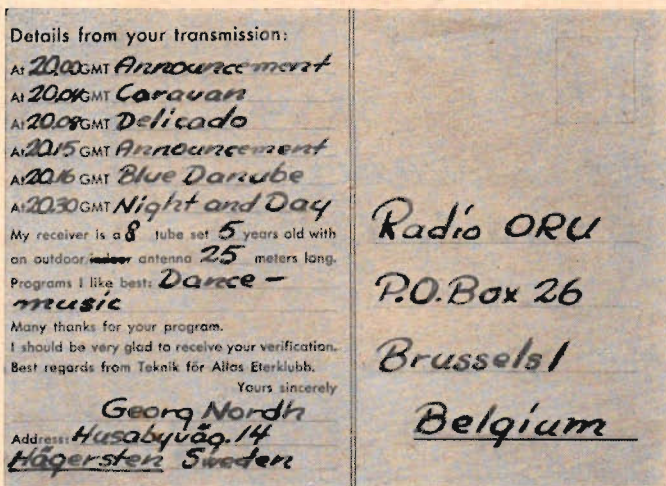 Details from your transmission:
At 20.00 GMT Announcement
At 20.04 GMT Caravan
At 20.08 GMT Delicado
At 20.15 GMT Announcement
At 20.16 GMT Blue Danube
At 20.30 GMT Night and Day
My receiver is a 8 tube set 5 years old with
an outdoor indoor antenna 25 meters long.
Programs I like best: Dance-
music
Many thanks for your program.
I should be very glad to receive your verification.
Best regards from Teknik för Allas Eterklubb.
Yours sincerely
Georg Nordh
Address: Husabyväg. 14
Hägersten Sweden
Radio ORU
P.O. Box 26
Brussels 1
Belgium